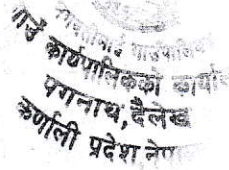 गाउँ कार्यपालिकाको कार्या
पगनाथ, दैलेख
कर्णाली प्रदेश नेपा